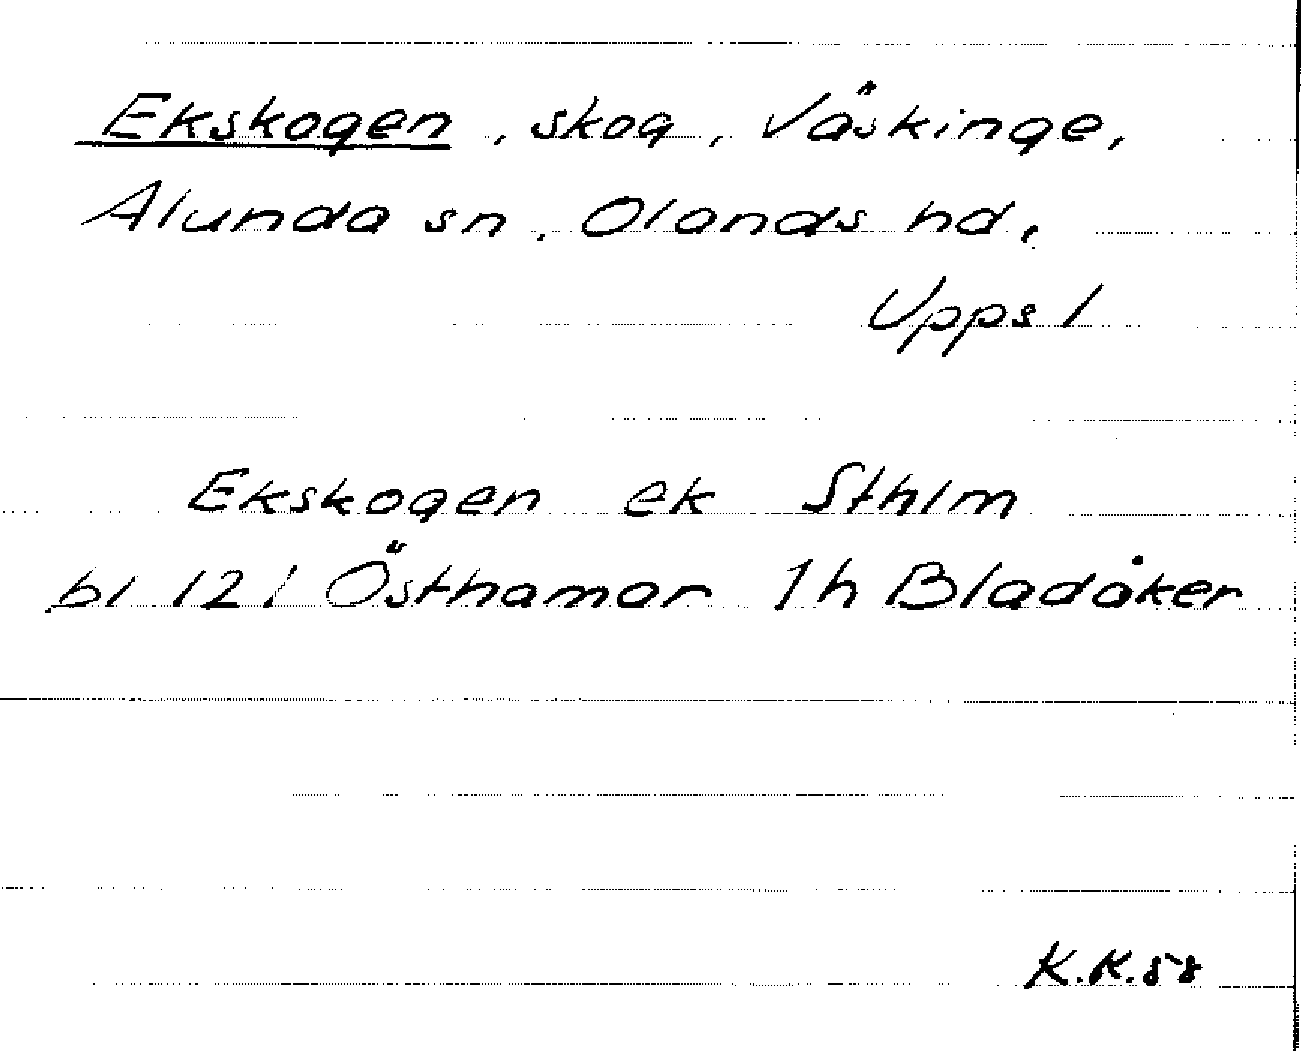 Ekskogen, skog, Våskinge,
Alunda sn, Olands hd,
Upps l
Ekskogen ek Sthlm
bl 121 Östhamar 1h Bladåker
K.K.58